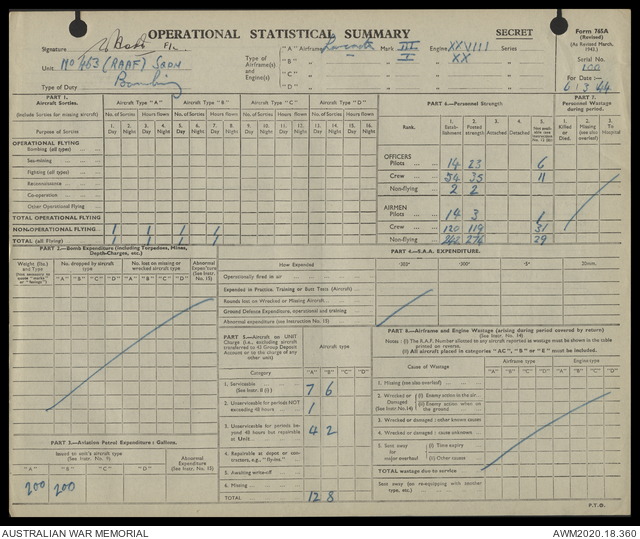 OPERATIONAL STATISTICAL SUMMARY
SECRET
Form 765A
(Revised)
(As Revised March, 1942.)
Serial No.
100
For Date :—
6 / 3 / 44
Signature
F/L
Unit No 463 (RAAF) Sqdn
Type of Duty Bombing
Type of Airframe(s) and Engine(s)
"A" Airframe Lancaster Mark III Engine XXVIII Series
"B" I XX
"C"
"D"
PART 1.
Aircraft Sorties.
(Include Sorties for missing aircraft)
Aircraft Type "A" Aircraft Type "B" Aircraft Type "C" Aircraft Type "D"
No. of Sorties Hours flown No. of Sorties Hours flown No. of Sorties Hours flown No. of Sorties Hours flown
Purpose of Sorties
1. Day 2. Night 3. Day 4. Night 5. Day 6. Night 7. Day 8. Night 9. Day 10. Night 11. Day 12. Night 13. Day 14. Night 15. Day 16. Night
OPERATIONAL FLYING
Bombing (all types)
Sea-mining
Fighting (all types)
Reconnaissance
Co-operation
Other Operational Flying
TOTAL OPERATIONAL FLYING
NON-OPERATIONAL FLYING
TOTAL (all Flying)
PART 6.—Personnel Strength
Rank.
1. Establishment
2. Posted strength
3. Attached
4. Detached
5.
OFFICERS
Pilots 14 23 6
Crew 54 35 11
Non-flying 2 2
AIRMEN
Pilots 14 3 1
Crew 120 119 31
Non-flying 242 276 29
PART 7.
Personnel Wastage during period.
1. Killed or Died.
2. Missing (see also overleaf)
3. To Hospital
PART 2.—Bomb Expenditure (including Torpedoes, Mines, Depth-Charges, etc.)
Weight (lbs.) and Type
No. dropped by aircraft type
No. lost on missing or wrecked aircraft type
Abnormal Expen'ture (See Instr. No. 15)
"A" "B" "C" "D" "A" "B" "C" "D"
PART 4.—S.A.A. EXPENDITURE.
How Expended
.303" .300" .5" 20mm.
Operationally fired in air
Expended in Practice, Training or Butt Tests (Aircraft)
Rounds lost on Wrecked or Missing Aircraft
Ground Defence Expenditure, operational and training
Abnormal expenditure (see Instruction No. 15)
PART 5.—Aircraft on UNIT Charge (i.e., excluding aircraft transferred to 43 Group Deposit Account or to the charge of any other unit)
Aircraft type
Category "A" "B" "C" "D"
1. Serviceable (See Instr. 8 (i) ) 7 6
2. Unserviceable for periods NOT exceeding 48 hours 1
3. Unserviceable for periods beyond 48 hours but repairable at Unit 4 2
4. Repairable at depot or contractors, e.g., "fly-ins."
5. Awaiting write-off
6. Missing
TOTAL 12 8
PART 8.—Airframe and Engine Wastage (arising during period covered by return)
(See Instr. No. 14)
Notes : (i) The R.A.F. Number allotted to any aircraft reported as wastage must be shown in the table printed on reverse.
(ii) All aircraft placed in categories "AC," "B" or "E" must be included.
Cause of Wastage
Airframe type
Engine type
"A" "B" "C" "D" "A" "B" "C" "D"
1. Missing (see also overleaf)
2. Wrecked or Damaged (See Instr. No.14)
(i) Enemy action in the air
(ii) Enemy action when on the ground
3. Wrecked or damaged : other known causes
4. Wrecked or damaged : cause unknown
5. Sent away for major overhaul
(i) Time expiry
(ii) Other causes
TOTAL wastage due to service
Sent away (re-equipping with another type, etc.)
PART 3.—Aviation Petrol Expenditure : Gallons.
Issued to unit's aircraft type (See Instr. No. 9)
Abnormal Expenditure (See Instr. No. 15)
"A" "B" "C" "D"
200 200
P.T.O.
AUSTRALIAN WAR MEMORIAL
AWM2020.18.360